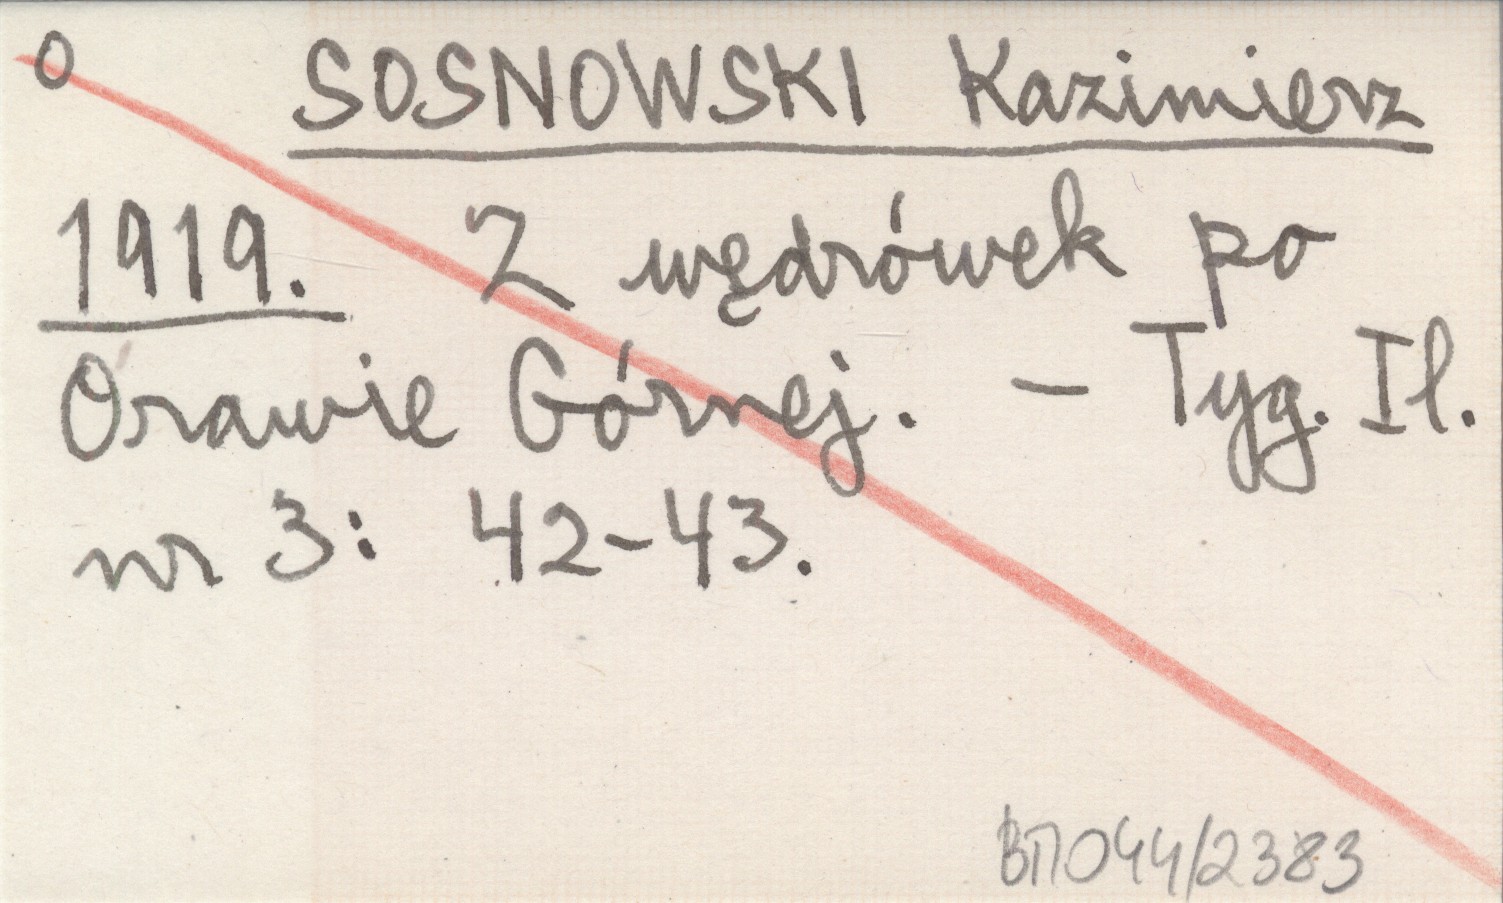 O SOSNOWSKI Kazimierz
1919. Z wędrówek po
Orawie Górnej. – Tyg. Il.
nr 3: 42-43.
ВП044/2383